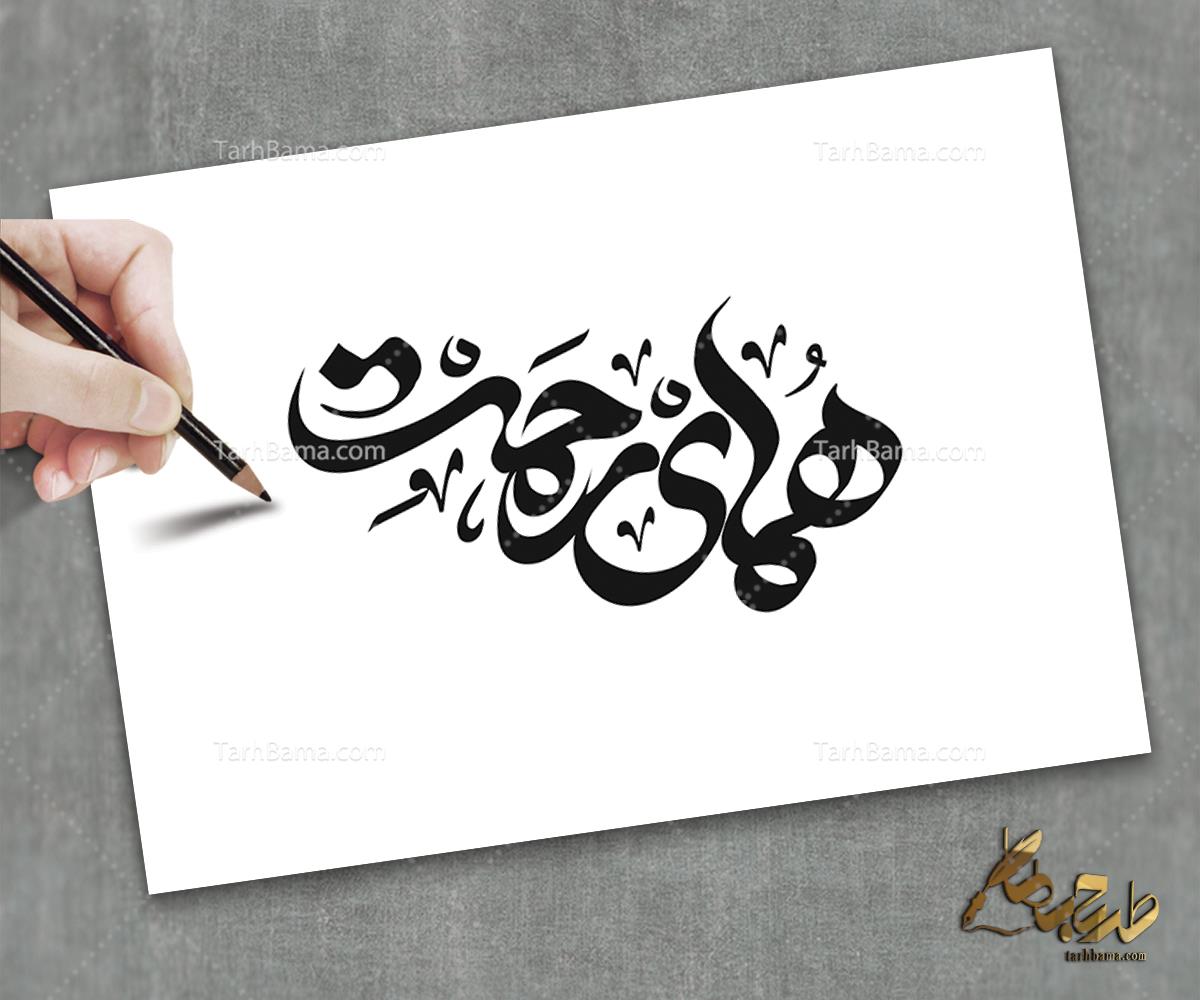 TarhBama.com TarhBama.com
همای رحمت
TarhBama.com TarhBama.com
TarhBama.com TarhBama.com
طرح با ما
tarhbama.com